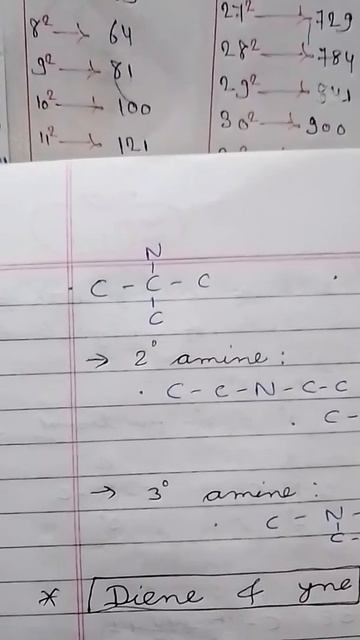 8² → 64
9² → 81
10² → 100
11² → 121
27² → 729
28² → 784
29² → 841
30² → 900
N
C - C - C
C
→ 2° amine :
. C - C - N - C - C
. C -
→ 3° amine :
. C - N -
C -
* Diene & yne